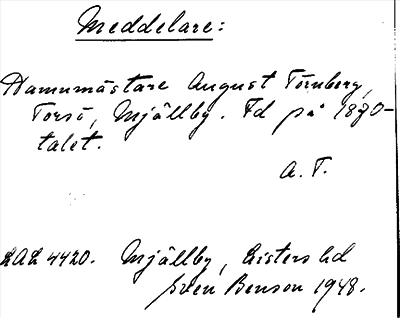 Meddelare:
Hamnmästare August Törnberg,
Torsö, Mjällby. Fd på 1870-
talet.
A. T.
LAL 4420. Mjällby, Listers hd
Sven Benson 1948.